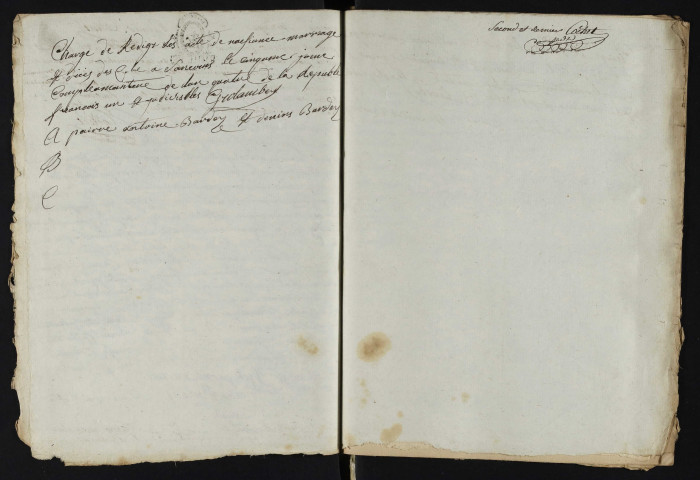 Charge de Rediger les acte de naissance mariage
et déces des C. be a Sancuins le cinquenc joure
Complementaire de lan quatre de la Republi
francois un et indivisibles Grolambert
A pairre antoine Bardoy et denins Bardoy
B
C
Second et dernier